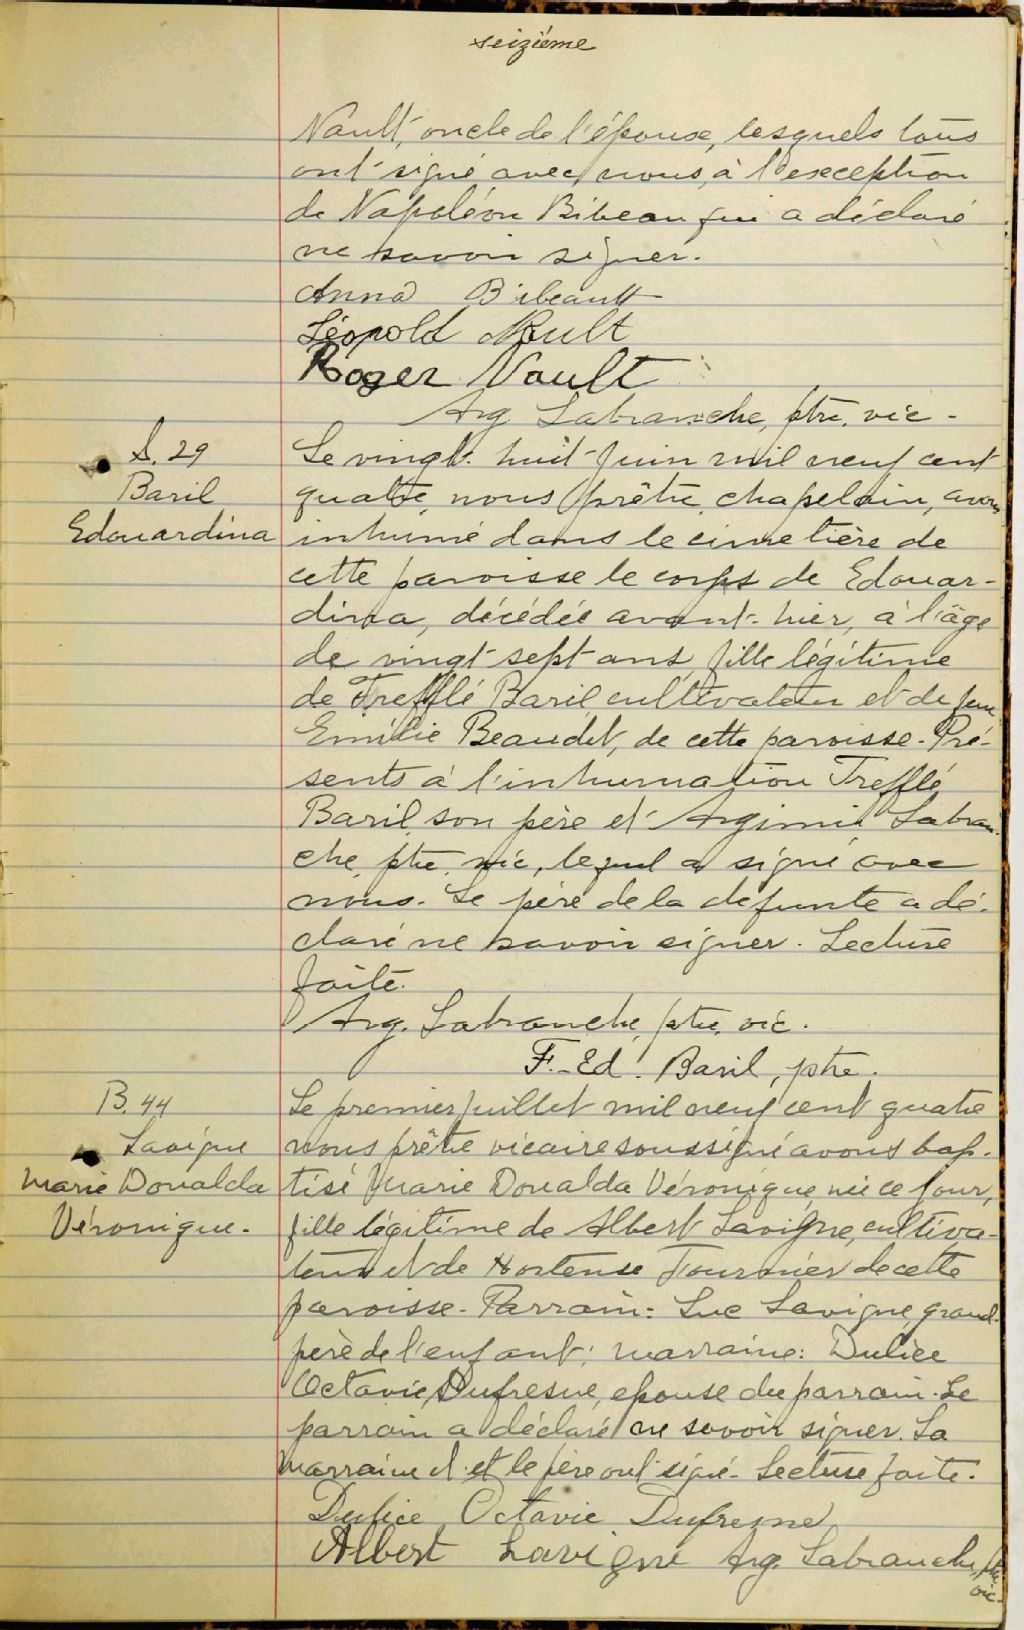 seizième
Nault, oncle de l'épouse, lesquels tous
ont signé avec nous, à l'exception
de Napoléon Bibeau qui a déclaré
ne savoir signer.
Anna Bibeault
Léopold Nault
Roger Nault
Arg. Labranche, ptre. vic.
S. 29
Baril
Edouardina
Le vingt-huit Juin mil neuf cent
quatre, nous prêtre, chapelain, avons
inhumé dans le cimetière de
cette paroisse le corps de Edouar-
dina, décédée avant-hier, à l'âge
de vingt-sept ans fille légitime
de Trefflé Baril cultivateur et de feue
Emilie Beaudet, de cette paroisse. Pré-
sents à l'inhumation Trefflé
Baril, son père et Argimir Labran-
che, ptre. vic., lequel a signé avec
nous. Le père de la défunte a dé-
claré ne savoir signer. Lecture
faite.
Arg. Labranche, ptre. vic.
F.-Ed. Baril, ptre.
B. 44
Lavigne
Marie Donalda
Véronique.
Le premier Juillet mil neuf cent quatre
nous prêtre vicaire soussigné avons bap-
tisé Marie Donalda Véronique, née ce jour,
fille légitime de Albert Lavigne, cultiva-
teur et de Hortense Fournier de cette
paroisse. Parrain: Luc Lavigne, grand-
père de l'enfant; marraine: Dulice
Octavie Dufresne, épouse du parrain. Le
parrain a déclaré ne savoir signer. La
marraine et le père ont signé. Lecture faite.
Dulice Octavie Dufresne
Albert Lavigne Arg. Labranche, ptre.
vic.